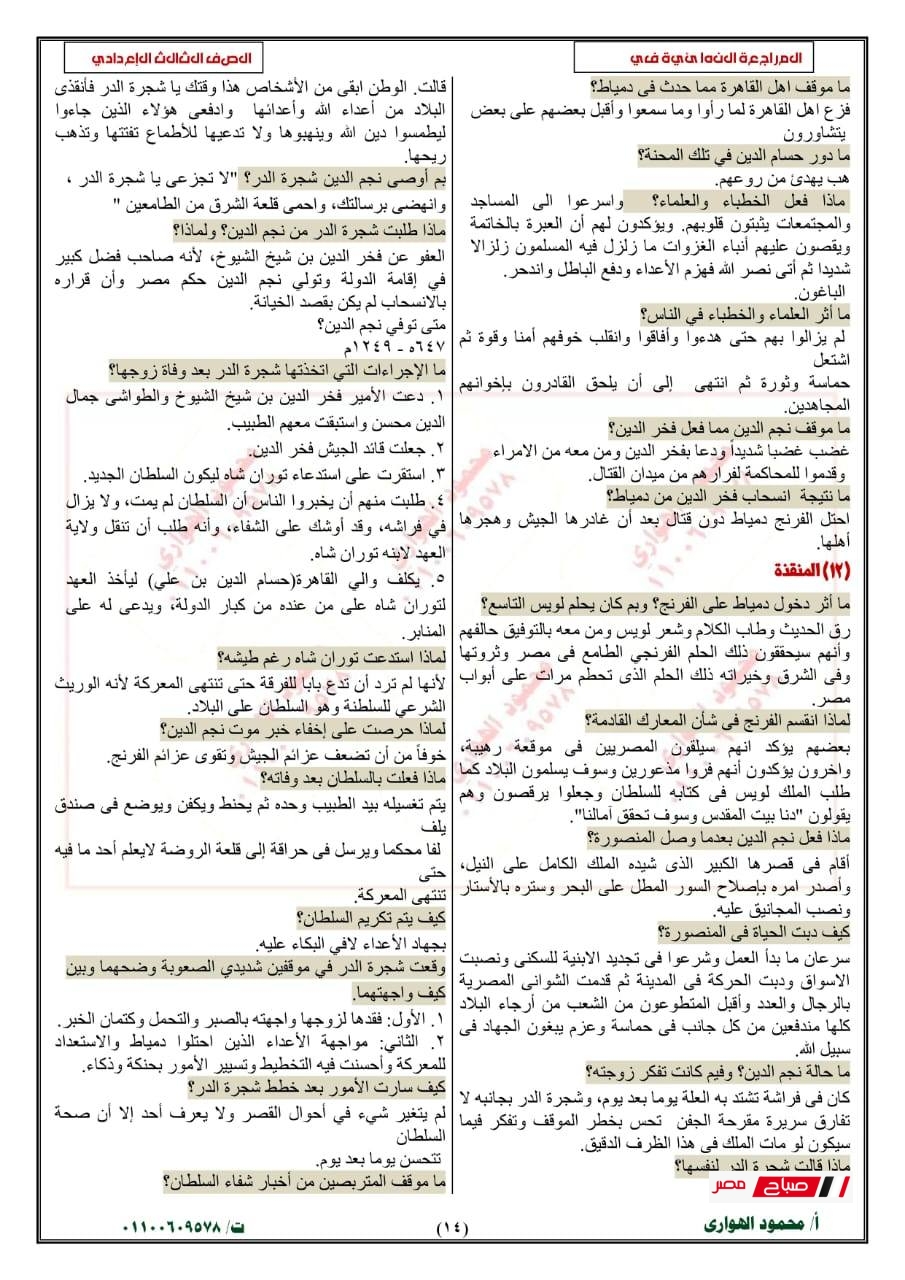 المراجعة النهائية في
الصف الثالث الإعدادي
ما موقف اهل القاهرة مما حدث فى دمياط؟
فزع اهل القاهرة لما رأوا وما سمعوا وأقبل بعضهم على بعض
يتشاورون
ما دور حسام الدين في تلك المحنة؟
هب يهدئ من روعهم.
ماذا فعل الخطباء والعلماء؟ واسرعوا الى المساجد
والمجتمعات يثبتون قلوبهم. ويؤكدون لهم أن العبرة بالخاتمة
ويقصون عليهم أنباء الغزوات ما زلزل فيه المسلمون زلزالا
شديدا ثم أتى نصر الله فهزم الأعداء ودفع الباطل واندحر.
الباغون.
ما أثر العلماء والخطباء في الناس؟
لم يزالوا بهم حتى هدءوا وأفاقوا وانقلب خوفهم أمنا وقوة ثم
اشتعل
حماسة وثورة ثم انتهى إلى أن يلحق القادرون بإخوانهم
المجاهدين.
ما موقف نجم الدين مما فعل فخر الدين؟
غضب غضبا شديداً ودعا بفخر الدين ومن معه من الامراء
وقدموا للمحاكمة لفرارهم من ميدان القتال.
ما نتيجة انسحاب فخر الدين من دمياط؟
احتل الفرنج دمياط دون قتال بعد أن غادرها الجيش وهجرها
أهلها.
(١٢) المنقذة
ما أثر دخول دمياط على الفرنج؟ وبم كان يحلم لويس التاسع؟
رق الحديث وطاب الكلام وشعر لويس ومن معه بالتوفيق حالفهم
وأنهم سيحققون ذلك الحلم الفرنجي الطامع فى مصر وثروتها
وفى الشرق وخيراته ذلك الحلم الذى تحطم مرات على أبواب
مصر.
لماذا انقسم الفرنج فى شأن المعارك القادمة؟
بعضهم يؤكد انهم سيلقون المصريين فى موقعة رهيبة،
واخرون يؤكدون أنهم فروا مذعورين وسوف يسلمون البلاد كما
طلب الملك لويس فى كتابه للسلطان وجعلوا يرقصون وهم
يقولون "دنا بيت المقدس وسوف تحقق آمالنا".
ماذا فعل نجم الدين بعدما وصل المنصورة؟
أقام فى قصرها الكبير الذى شيده الملك الكامل على النيل،
وأصدر امره بإصلاح السور المطل على البحر وستره بالأستار
ونصب المجانيق عليه.
كيف دبت الحياة فى المنصورة؟
سرعان ما بدأ العمل وشرعوا فى تجديد الابنية للسكنى ونصبت
الاسواق ودبت الحركة فى المدينة ثم قدمت الشوانى المصرية
بالرجال والعدد وأقبل المتطوعون من الشعب من أرجاء البلاد
كلها مندفعين من كل جانب فى حماسة وعزم يبغون الجهاد فى
سبيل الله.
ما حالة نجم الدين؟ وفيم كانت تفكر زوجته؟
كان فى فراشة تشتد به العلة يوما بعد يوم، وشجرة الدر بجانبه لا
تفارق سريرة مقرحة الجفن تحس بخطر الموقف وتفكر فيما
سيكون لو مات الملك فى هذا الظرف الدقيق.
ماذا قالت شجرة الدر لنفسها؟
قالت. الوطن ابقى من الأشخاص هذا وقتك يا شجرة الدر فأنقذى
البلاد من أعداء الله وأعدائها وادفعى هؤلاء الذين جاءوا
ليطمسوا دين الله وينهبوها ولا تدعيها للأطماع تفتتها وتذهب
ريحها.
بم أوصى نجم الدين شجرة الدر؟ "لا تجزعى يا شجرة الدر ،
وانهضى برسالتك، واحمى قلعة الشرق من الطامعين "
ماذا طلبت شجرة الدر من نجم الدين؟ ولماذا؟
العفو عن فخر الدين بن شيخ الشيوخ، لأنه صاحب فضل كبير
في إقامة الدولة وتولي نجم الدين حكم مصر وأن قراره
بالانسحاب لم يكن بقصد الخيانة.
متى توفي نجم الدين؟
٦٤٧ه - ١٢٤٩م
ما الإجراءات التي اتخذتها شجرة الدر بعد وفاة زوجها؟
١. دعت الأمير فخر الدين بن شيخ الشيوخ والطواشى جمال
الدين محسن واستبقت معهم الطبيب.
٢. جعلت قائد الجيش فخر الدين.
٣. استقرت على استدعاء توران شاه ليكون السلطان الجديد.
٤. طلبت منهم أن يخبروا الناس أن السلطان لم يمت، ولا يزال
في فراشه، وقد أوشك على الشفاء، وأنه طلب أن تنقل ولاية
العهد لابنه توران شاه.
٥. يكلف والي القاهرة(حسام الدين بن علي) ليأخذ العهد
لتوران شاه على من عنده من كبار الدولة، ويدعى له على
المنابر.
لماذا استدعت توران شاه رغم طيشه؟
لأنها لم ترد أن تدع بابا للفرقة حتى تنتهى المعركة لأنه الوريث
الشرعي للسلطنة وهو السلطان على البلاد.
لماذا حرصت على إخفاء خبر موت نجم الدين؟
خوفاً من أن تضعف عزائم الجيش وتقوى عزائم الفرنج.
ماذا فعلت بالسلطان بعد وفاته؟
يتم تغسيله بيد الطبيب وحده ثم يحنط ويكفن ويوضع فى صندق
يلف
لفا محكما ويرسل فى حراقة إلى قلعة الروضة لايعلم أحد ما فيه
حتى
تنتهى المعركة.
كيف يتم تكريم السلطان؟
بجهاد الأعداء لافي البكاء عليه.
وقعت شجرة الدر في موقفين شديدي الصعوبة وضحهما وبين
كيف واجهتهما.
١. الأول: فقدها لزوجها واجهته بالصبر والتحمل وكتمان الخبر.
٢. الثاني: مواجهة الأعداء الذين احتلوا دمياط والاستعداد
للمعركة وأحسنت فيه التخطيط وتسيير الأمور بحنكة وذكاء.
كيف سارت الأمور بعد خطط شجرة الدر؟
لم يتغير شيء في أحوال القصر ولا يعرف أحد إلا أن صحة
السلطان
تتحسن يوما بعد يوم.
ما موقف المتربصين من أخبار شفاء السلطان؟
صباح مصر
أ/ محمود الهوارى
(١٤)
ت/ ٠١١٠٠٦٠٩٥٧٨